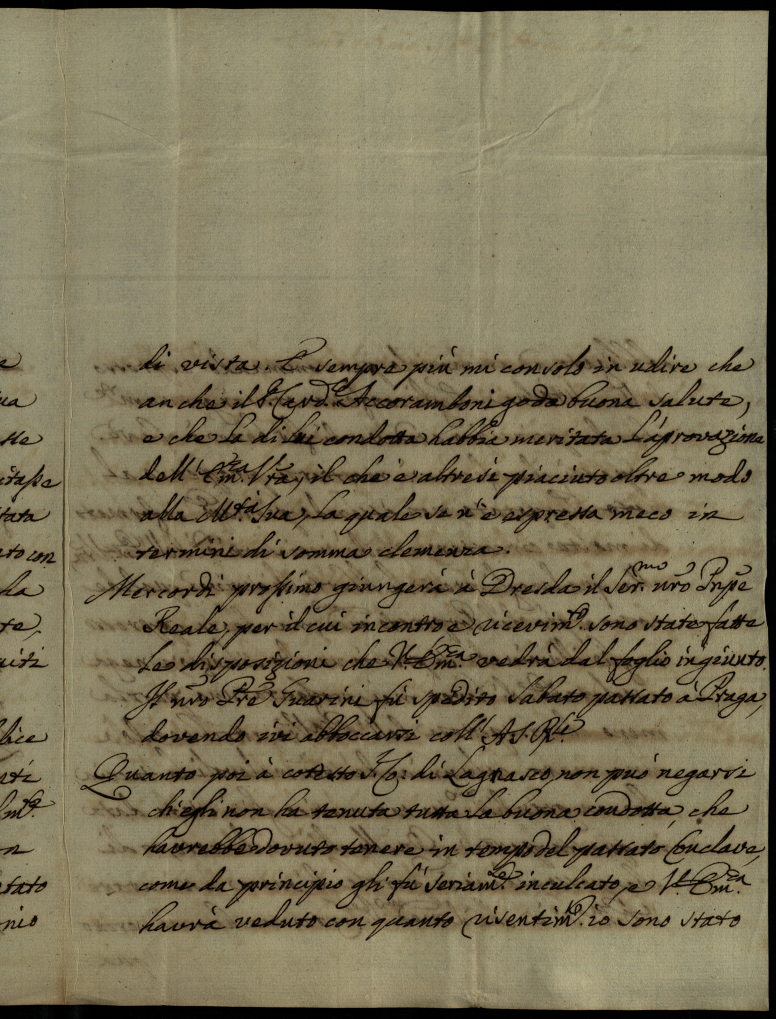 di vista. E sempre più mi consolo in udire che
anche il S. Card.e Accoramboni goda buona salute,
e che la di lui condotta habbia meritata l'aprovazione
dell'Em.za V.ra, il che è altresì piaciuto oltre modo
alla M.tà Sua, la quale se n'è espressa meco in
termini di somma clemenza.
Mercordì prossimo giungerà à Dresda il Ser.mo nr̃o Pnp̃e
Reale, per il cui incontro e ricevim.to sono state fatte
le disposizioni che V. Em.za vedrà dal foglio ingiunto.
Il nr̃o Pr̃e Guarini fù spedito Sabato passato à Praga,
dovendo ivi abboccarsi coll'A.S.R.le
Quanto poi à cotesto S. Co: di Lagnasco, non può negarsi
ch'egli non ha tenuta tutta la buona condotta, che
havrebbe dovuto tenere in tempo del passato Conclave,
come da principio gli fù seriam.te inculcato, e V. Em.za
havrà veduto con quanto risentim.to io sono stato
e
ua
tata
ato con
la
te,
uiti
lice
ati
n
tato
nio